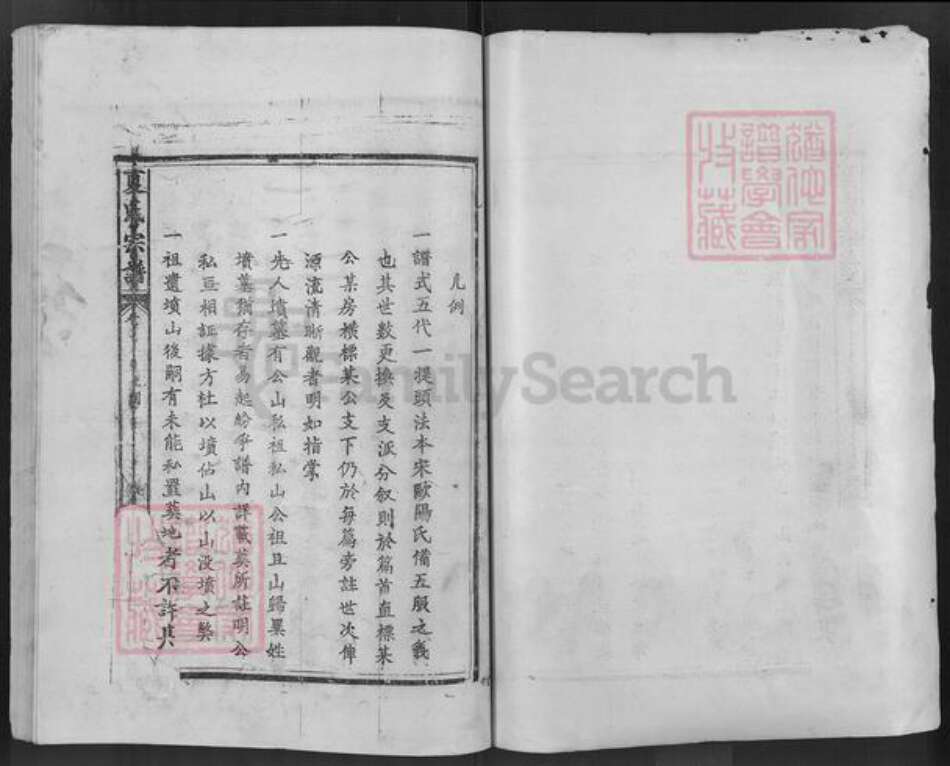 凡例
一譜式五代一提頭法本宋歐陽氏備五服之義
也其世數更換及支派分叙則於篇首直標某
公某房橫標某公支下仍於每篇旁註世次俾
源流清晰觀者明如指掌
一先人墳墓有公山私祖私山公祖且山歸異姓
墳墓猶存者易起紛爭譜內詳載葬所註明公
私互相証據方杜以墳佔山以山没墳之弊
一祖遺墳山後嗣有未能私置葬地者不許其
夏氏宗譜
譜學會
藏
FamilySearch